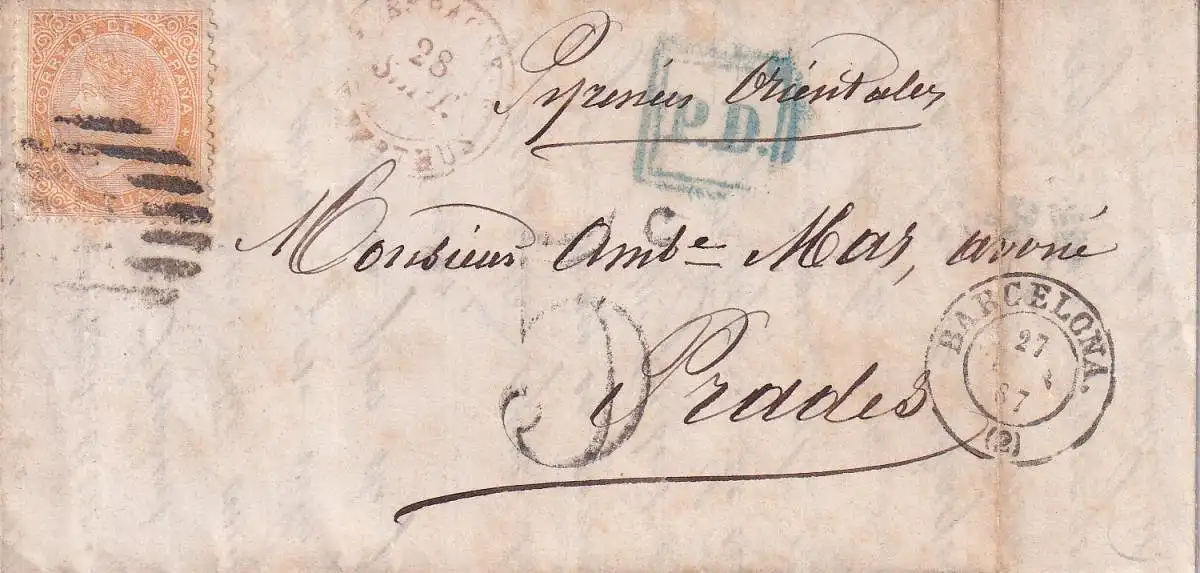 CORREOS DE ESPAÑA
28
SEPT.
Pyrénées Orientales
P.D.
c
Monsieur Ambe Mas, avoué
5
Prades
BARCELONA.
27
67
(2)